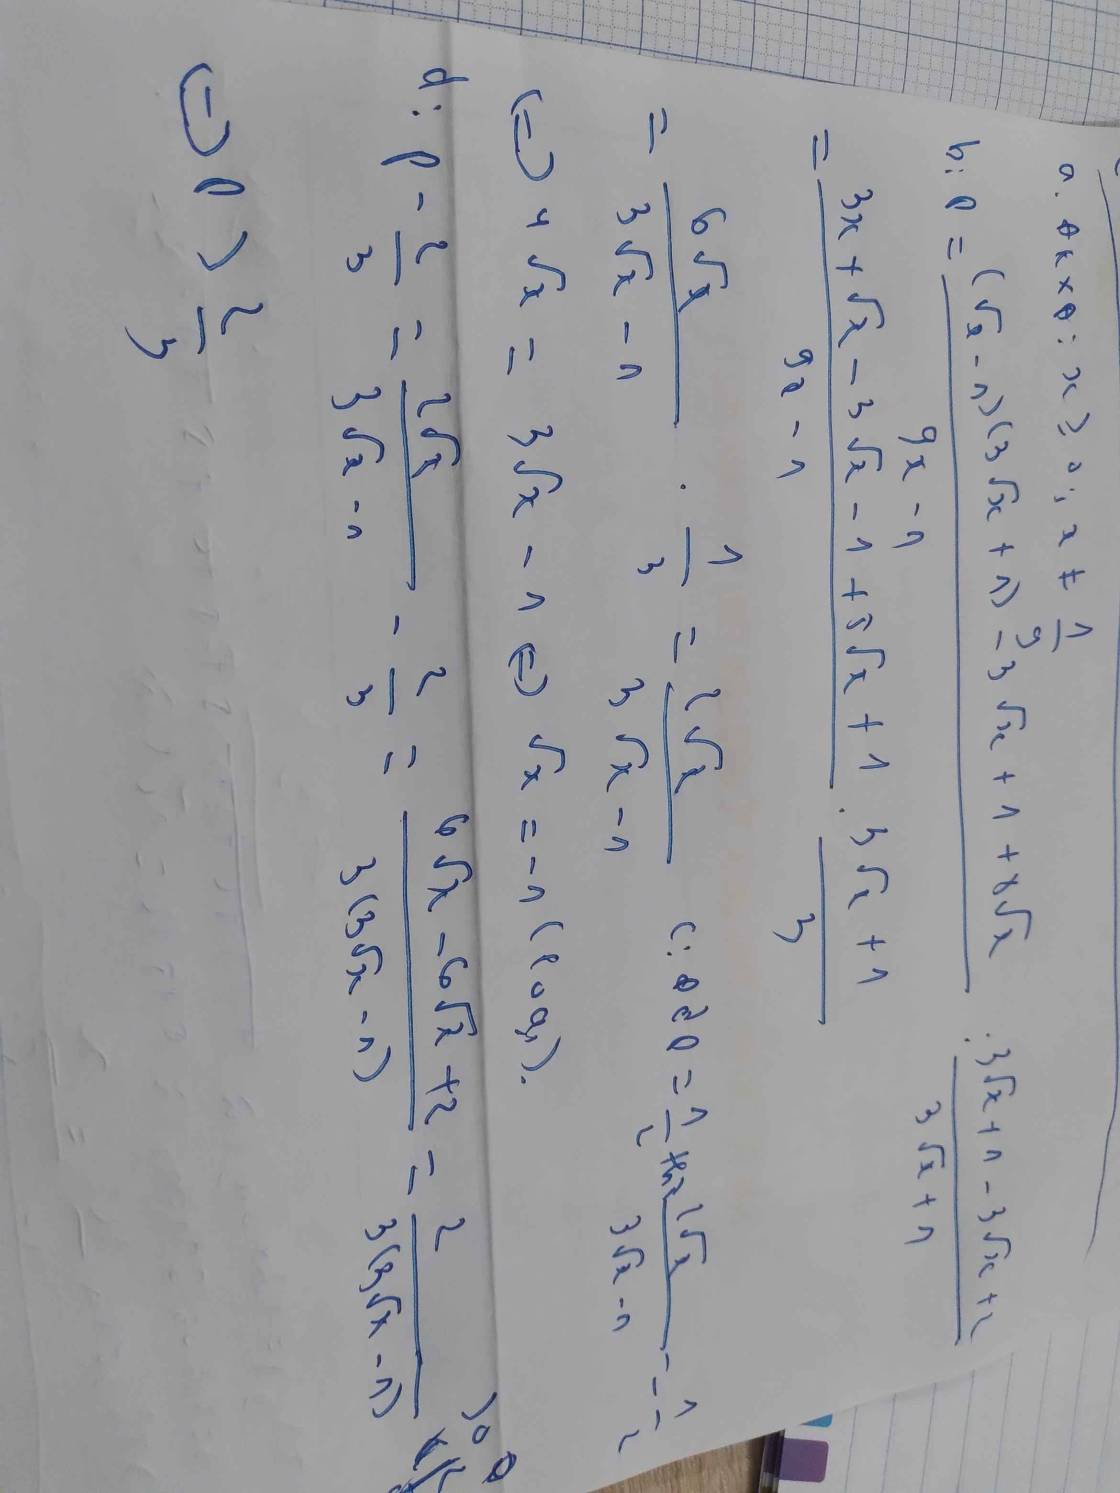 a. ĐKXĐ: x ≥ 0; x ≠ 1/9
b: P = ((√x - 1)(3√x + 1) - 3√x + 1 + 8√x)/(9x - 1) : (3√x + 1 - 3√x + 2)/(3√x + 1)
= (3x + √x - 3√x - 1 + 5√x + 1)/(9x - 1) . (3√x + 1)/3
= 6√x/(3√x - 1) . 1/3 = 2√x/(3√x - 1) c: Để P = 1/2 thì 2√x/(3√x - 1) = 1/2
(=) 4√x = 3√x - 1 (=) √x = -1 (loại).
d: P - 2/3 = 2√x/(3√x - 1) - 2/3 = (6√x - 6√x + 2)/(3(3√x - 1)) = 2/(3(3√x - 1)) > 0
(=) P > 2/3